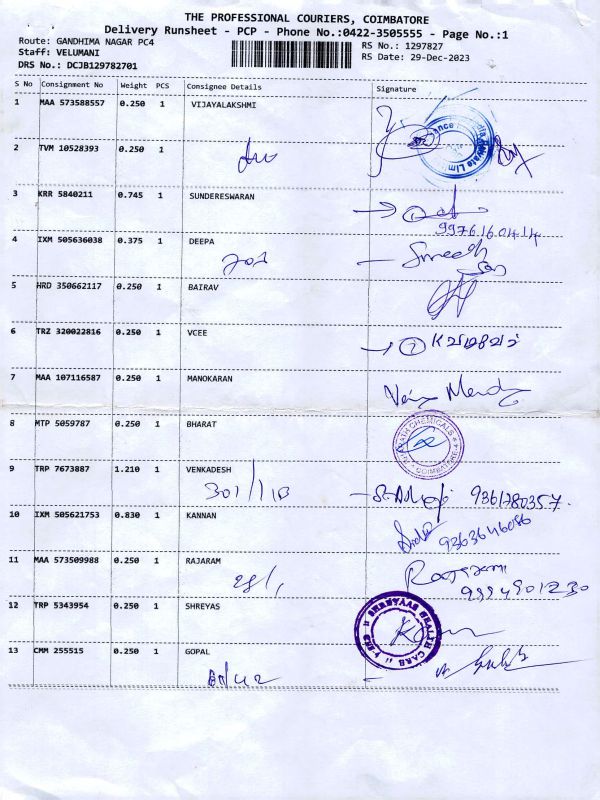 THE PROFESSIONAL COURIERS, COIMBATORE
Delivery Runsheet - PCP - Phone No.:0422-3505555 - Page No.:1
Route: GANDHIMA NAGAR PC4
Staff: VELUMANI
DRS No.: DCJB129782701
RS No.: 1297827
RS Date: 29-Dec-2023
S No Consignment No Weight PCS Consignee Details Signature
1 MAA 573588557 0.250 1 VIJAYALAKSHMI
2 TVM 10528393 0.250 1
3 KRR 5840211 0.745 1 SUNDERESWARAN
9976160414
4 IXM 505636038 0.375 1 DEEPA
201
5 HRD 350662117 0.250 1 BAIRAV
6 TRZ 320022816 0.250 1 VCEE
7 MAA 107116587 0.250 1 MANOKARAN
8 MTP 5059787 0.250 1 BHARAT
CHEMICALS
COIMBATORE-4
9 TRP 7673887 1.210 1 VENKADESH
301/11B 9361780357
10 IXM 505621753 0.830 1 KANNAN
9363646086
11 MAA 573509988 0.250 1 RAJARAM
28/1 Rajarami
9994901230
12 TRP 5343954 0.250 1 SHREYAS
SHREYAAS HEALTH CARE
13 CMM 255515 0.250 1 GOPAL